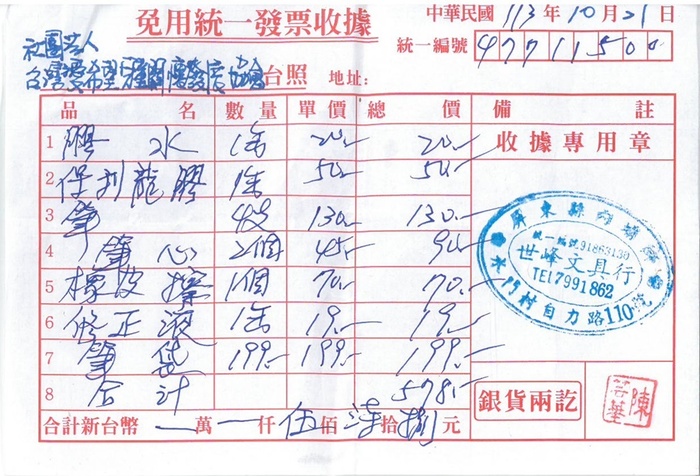 免用統一發票收據
中華民國 113年10月21日
統一編號 47711500
社團法人
台灣愛希望 協會 台照 地址:
品名 數量 單價 總價 備註
1 膠水 1瓶 20.- 20.- 收據專用章
2 保利龍膠 1瓶 50.- 50.-
3 筆 4支 130.- 130.-
4 筆心 2個 45.- 90.-
5 橡皮擦 1個 70.- 70.-
6 修正液 1瓶 19.- 19.-
7 筆袋 199.- 199.- 199.-
8 合計 578.-
合計新台幣 萬 仟 伍佰 柒拾 捌元
屏東縣
統一編號91863130
世峰文具行
TEL7991862
水門村自力路110號
銀貨兩訖
陳